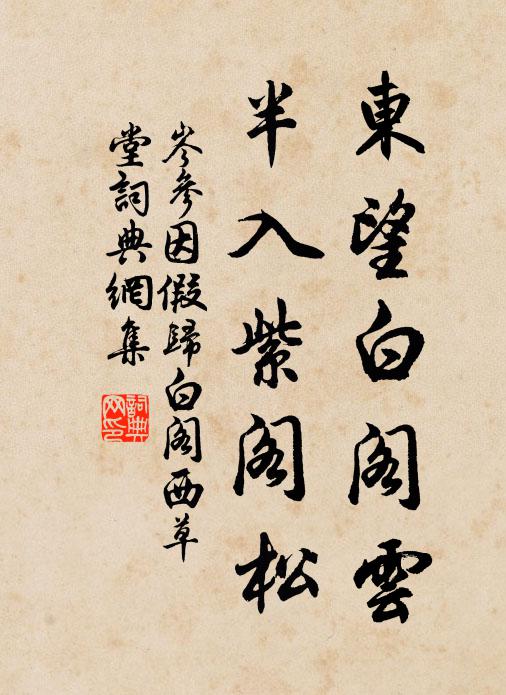 東望白阁雲
半入紫阁松
岑參因假歸白阁西草
堂詞典網集
詞典
网印